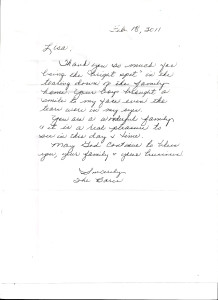 Feb 18, 2011
Lisa,
Thank you so much for
being the "bright spot" in the
tearing down of the family
home. Your boys brought a
smile to my face even tho
tears were in my eyes.
You are a wonderful family
& it is a real pleasure to
see in this day & time.
May God continue to bless
you, your family & your business
Sincerely
The